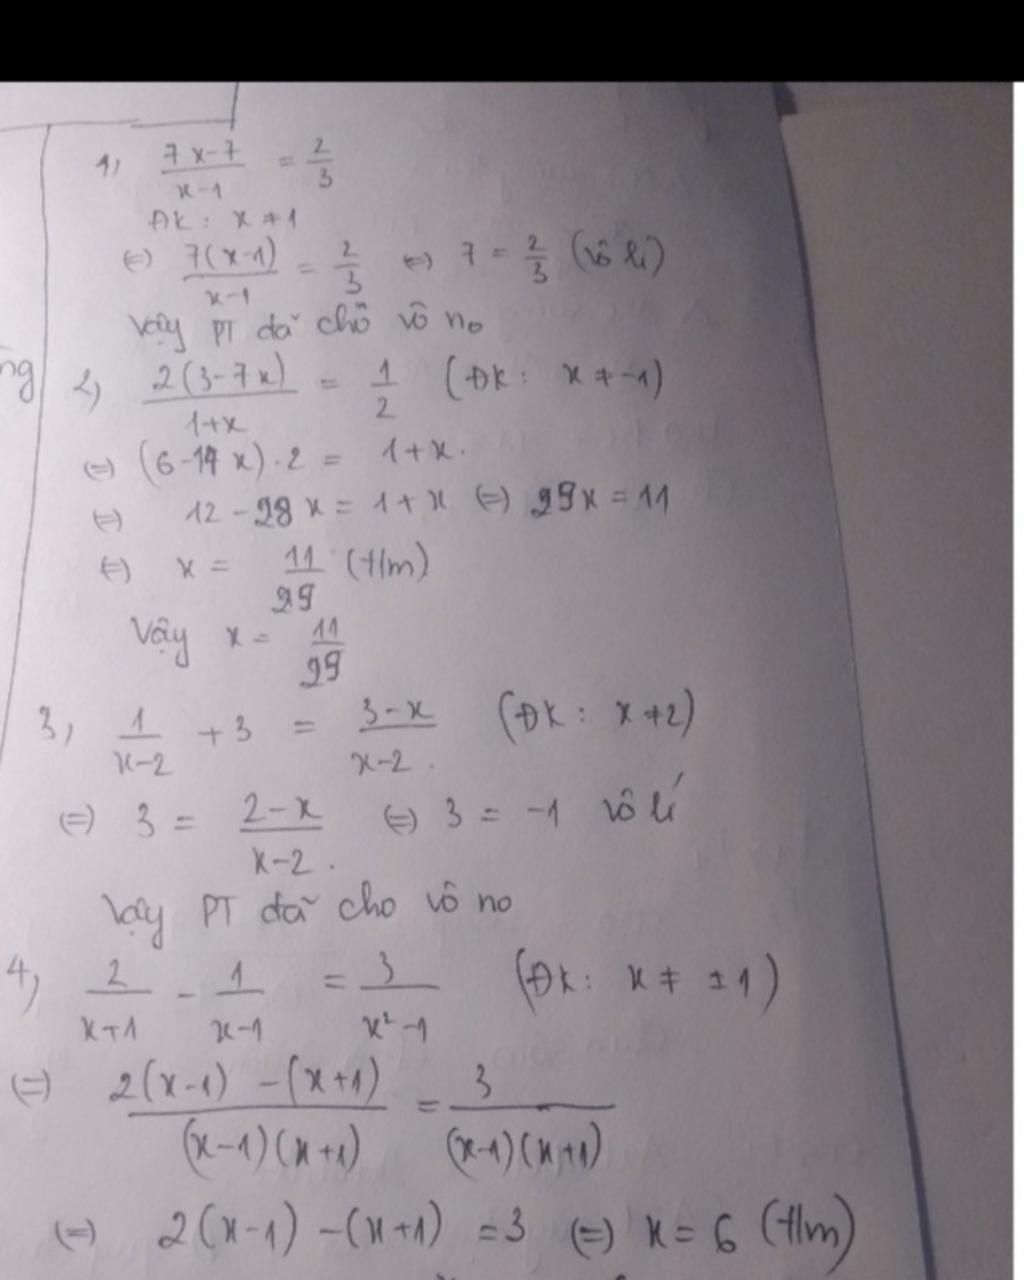 1, (7x-7)/(x-1) = 2/3
ĐK: x ≠ 1
⇔ 7(x-1)/(x-1) = 2/3 ⇔ 7 = 2/3 (vô lí)
Vậy PT đã chô vô no
ng
2, 2(3-7x)/(1+x) = 1/2 (ĐK: x ≠ -1)
⇔ (6-14x).2 = 1+x.
⇔ 12 - 28x = 1+x ⇔ 29x = 11
⇔ x = 11/29 (t/m)
Vậy x = 11/29
3, 1/(x-2) + 3 = (3-x)/(x-2). (ĐK: x ≠ 2)
⇔ 3 = (2-x)/(x-2). ⇔ 3 = -1 vô lí
Vậy PT đã cho vô no
4, 2/(x+1) - 1/(x-1) = 3/(x²-1) (ĐK: x ≠ ±1)
⇔ (2(x-1) -(x+1))/((x-1)(x+1)) = 3/((x-1)(x+1))
⇔ 2(x-1) -(x+1) = 3 ⇔ x = 6 (t/m)